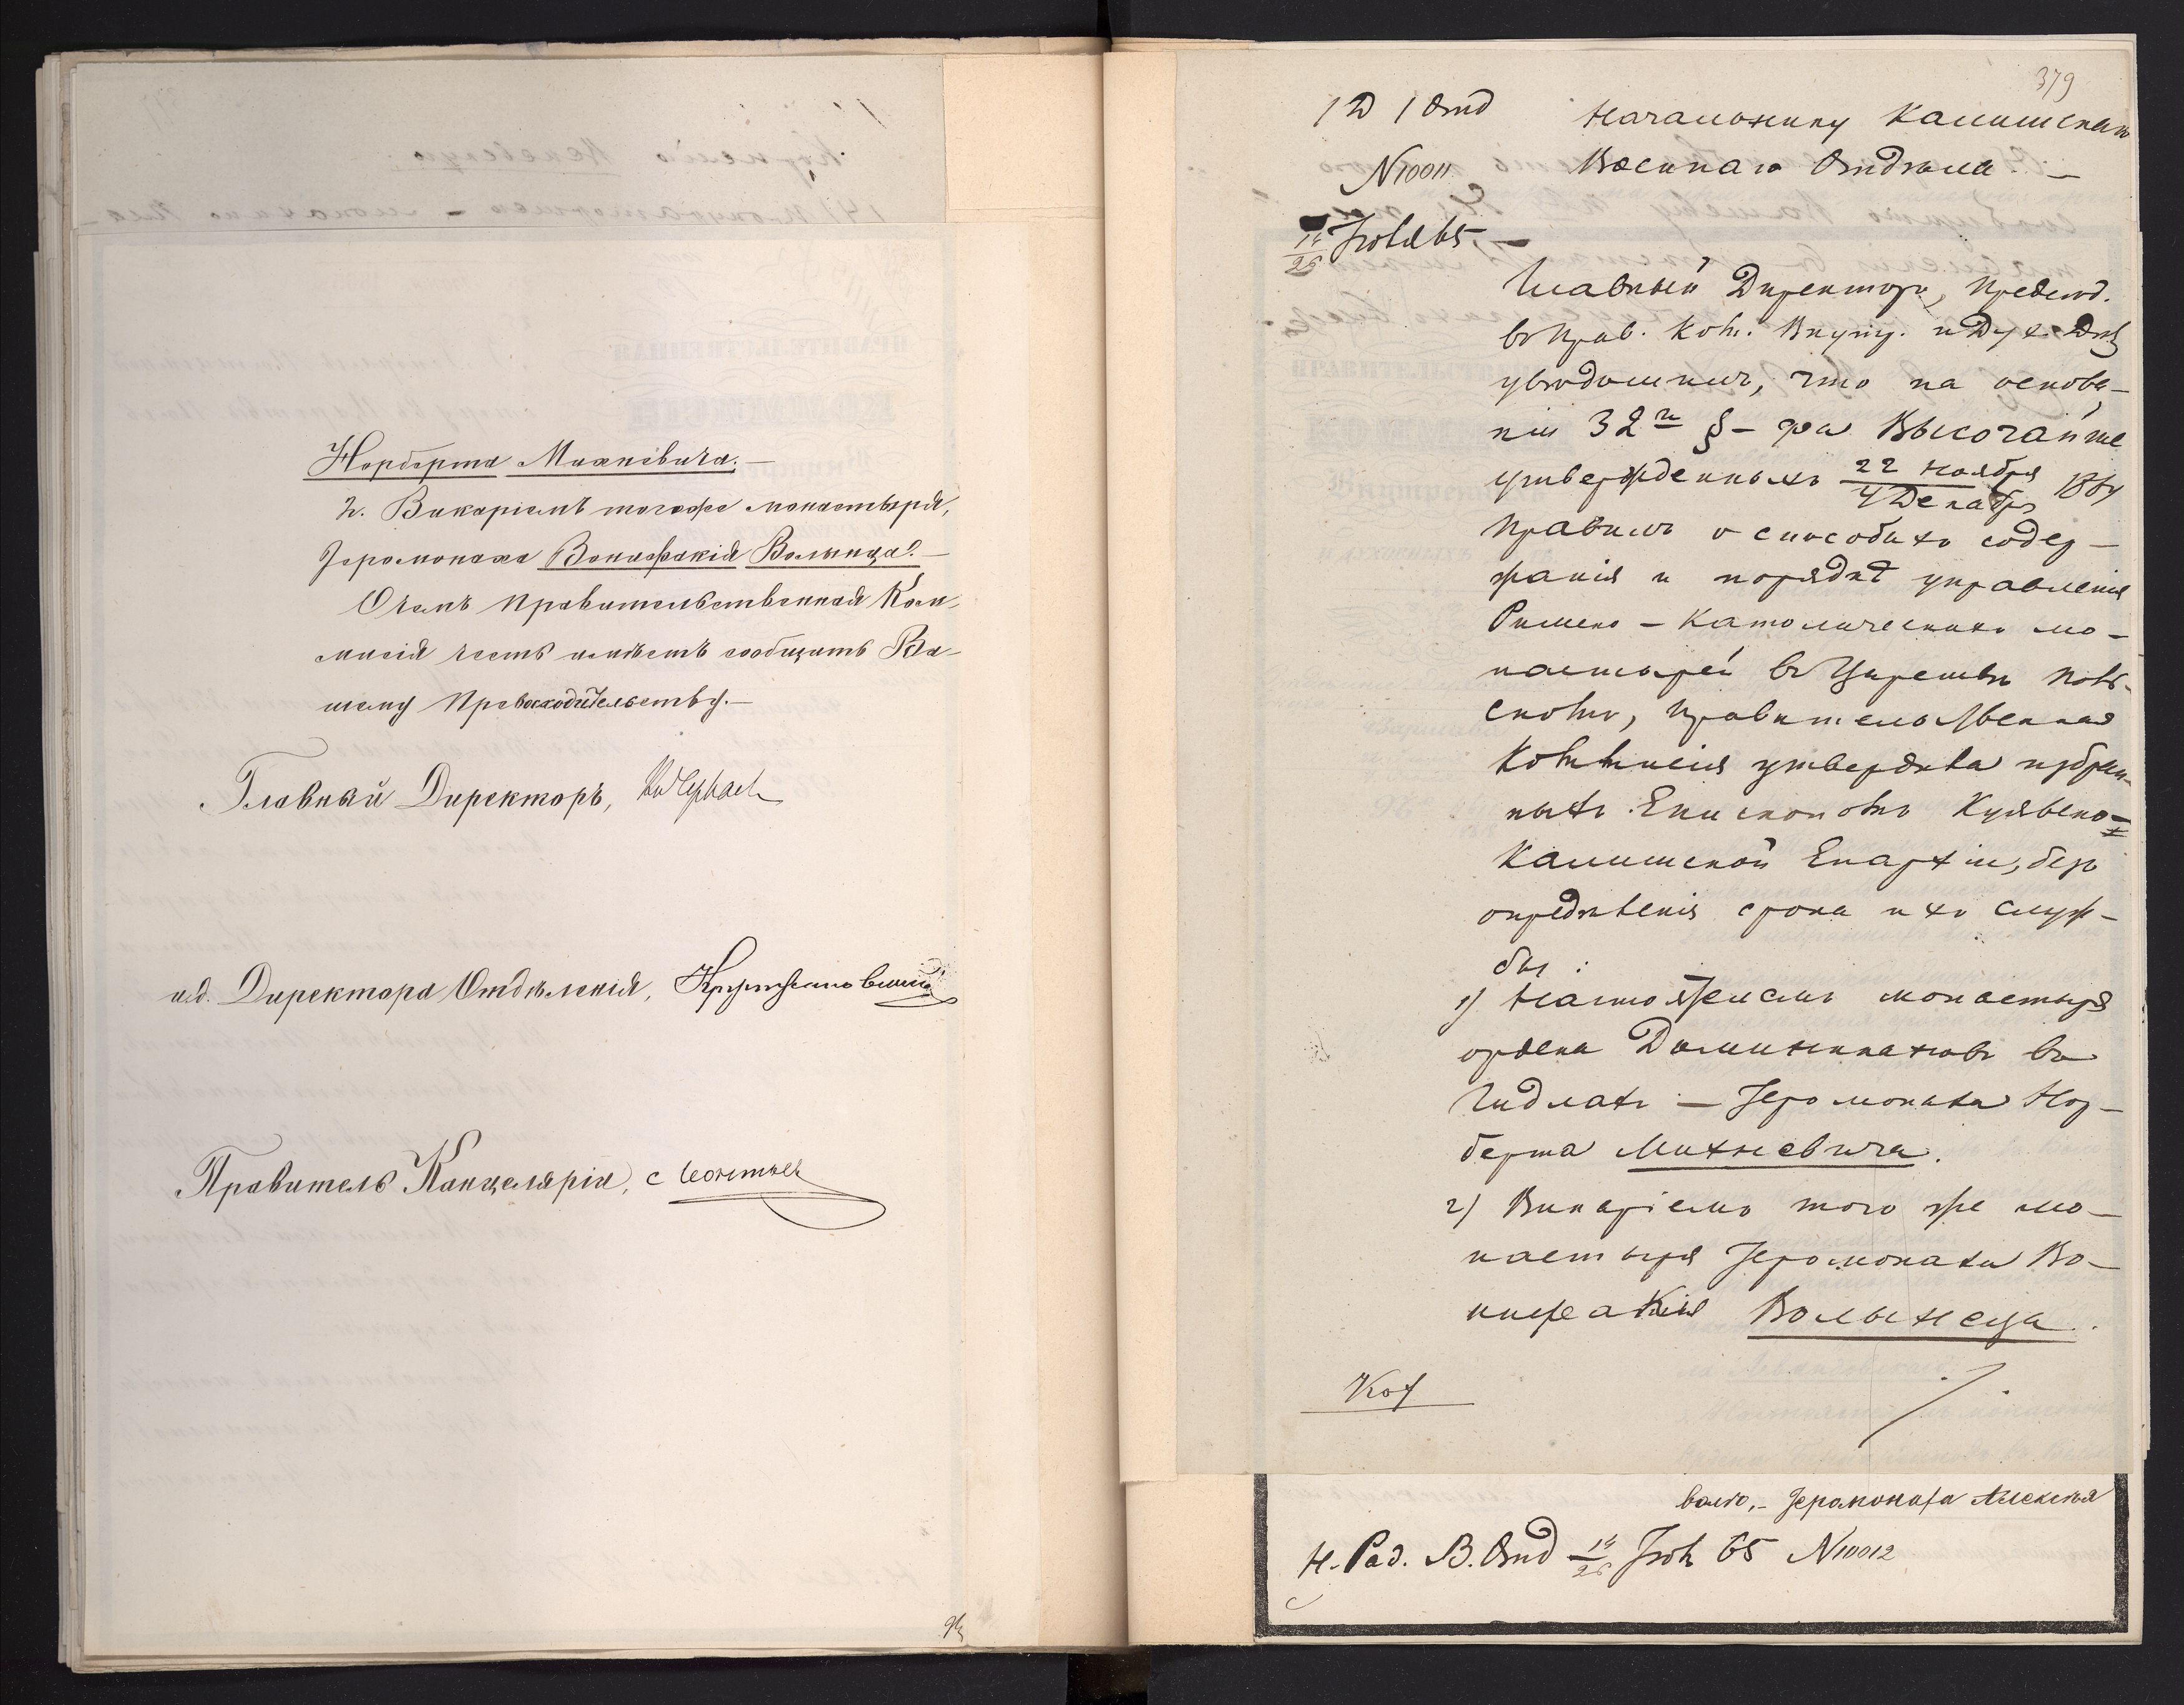 Норберта Махневича.—
2. Викаріемъ тогоже монастыря,
Іеромонаха Вонифакія Волынца.—
О чемъ Правительственная Ком-
мисія честь имѣетъ сообщить Ва-
шему Превосходительству.—
Главный Директоръ,
и.д. Директора Отдѣленія,
Правитель Канцеляріи,
379
1 Д 1 Отд
Начальнику Калишскаго
N 10011
Военнаго Отдѣла. —
14/26 Іюля 65 —
Главный Директоръ, Предсѣд.
въ Прав. Ком. Внутр. и Дух. Дѣлъ
увѣдомилъ, что на основа-
ніи 32го §-фа Высочайше
утвержденныхъ 22 Ноября / 4 Декабря 1864
правилъ о способахъ содер-
жанія и порядкѣ управленія
Римско-Католическихъ мо-
настырей въ Царствѣ Поль-
скомъ, Правительственная
Коммисія утвердила избран-
ныхъ Епископомъ Куявско-
Калишской Епархіи, безъ
опредѣленія срока ихъ служ-
бы:
1) Настоятелемъ монастыря
ордена Доминикановъ въ
Гидляхъ — Іеромонаха Нор-
берта Михневича.
2) Викаріемъ того же мо-
настыря Іеромонаха Во-
нифакія Волынеца.
вало,- Іеромонаха Алексѣя
Н. Рад. В. Отд 14/26 Іюл 65 N 10012